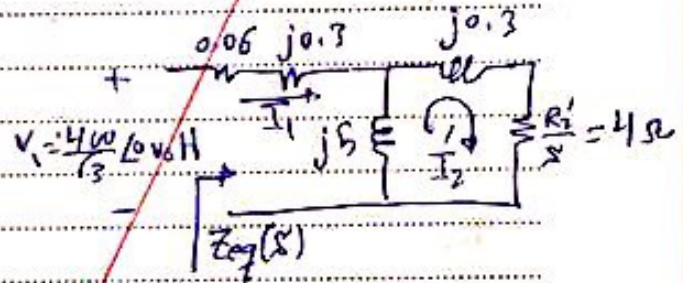 0.06 j0.3 j0.3
+
I₁
V₁ = 400/√3 ∠0 volt j5 I₂ R₂'/s = 4Ω
-
Zeq(s)